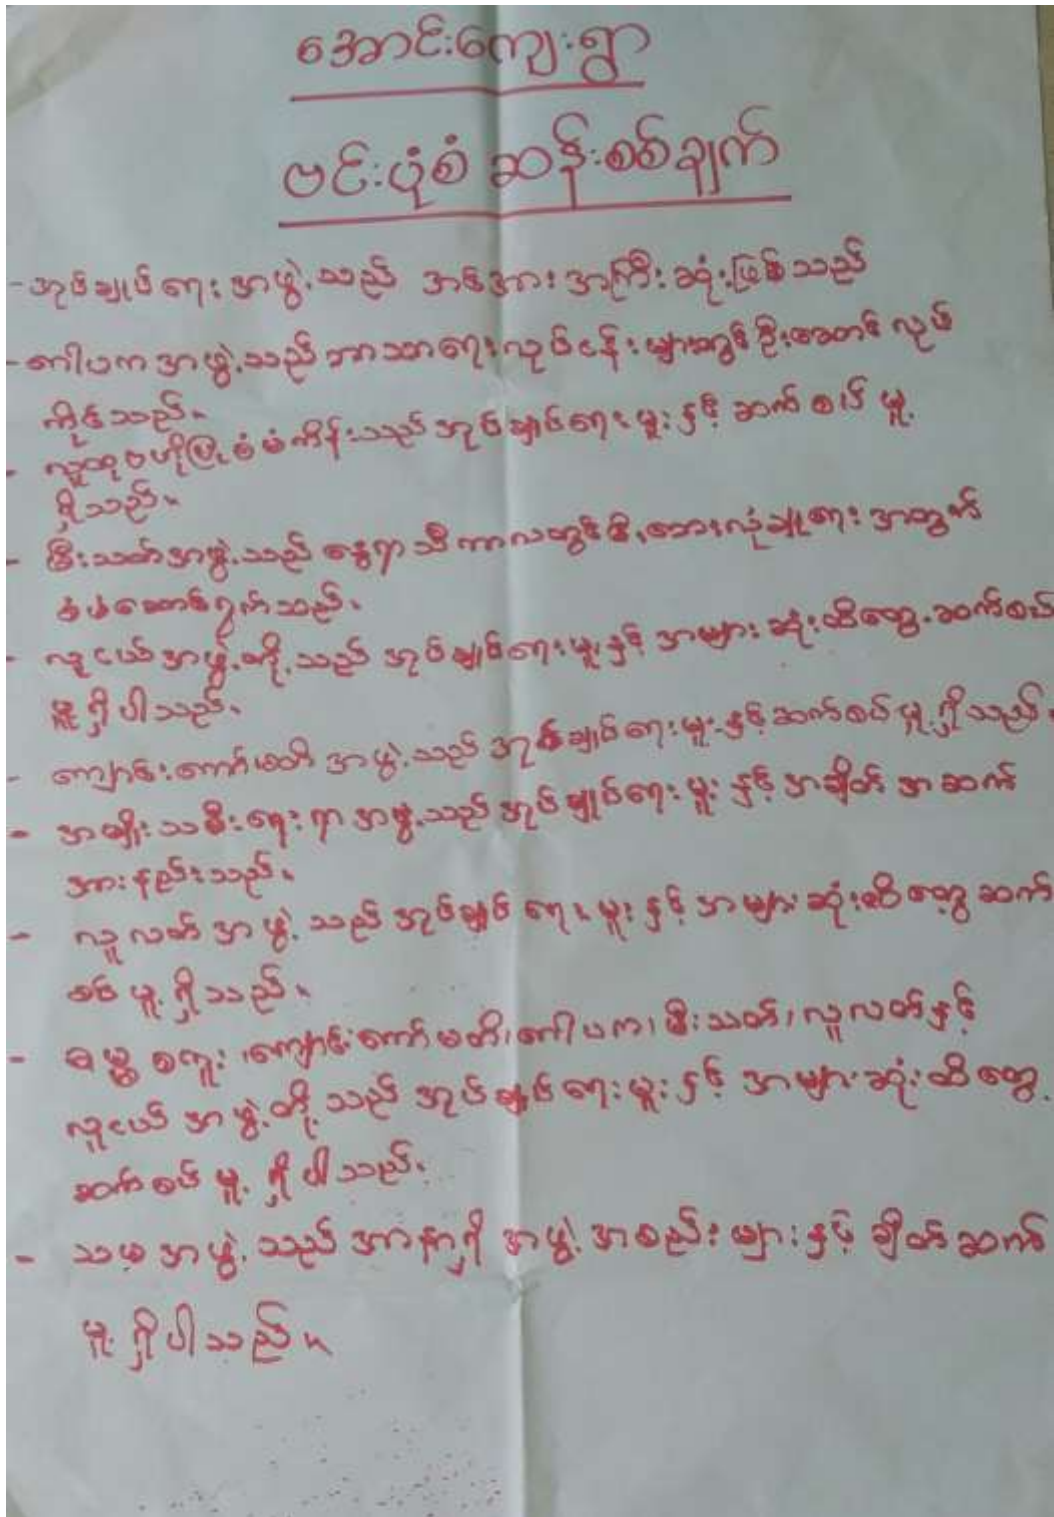 အောင်းကျေးရွာ
ဗင်းပုံစံ ဆန်းစစ်ချက်
- အုပ်ချုပ်ရေး အဖွဲ့သည် အင်အား အကြီးဆုံးဖြစ်သည်
- ဂေါပကအဖွဲ့သည် ဘာသာရေးလုပ်ငန်းများတွင် ဦးဆောင် လုပ်
ကိုင်သည်။
- လူထုဗဟိုပြုစီမံကိန်းသည် အုပ်ချုပ်ရေးမှူးနှင့် ဆက်စပ်မှု
ရှိသည်။
- မီးသတ်အဖွဲ့သည် နွေရာသီကာလတွင် မီးဘေးလုံခြုံရေး အတွက်
စီမံဆောင်ရွက်သည်။
- လူငယ်အဖွဲ့တို့သည် အုပ်ချုပ်ရေးမှူးနှင့် အများဆုံးထိတွေ့ဆက်စပ်
မှုရှိပါသည်။
- ကျောင်းကော်မတီ အဖွဲ့သည် အုပ်ချုပ်ရေးမှူးနှင့်ဆက်စပ်မှုရှိသည်။
- အမျိုးသမီးရေးရာအဖွဲ့သည် အုပ်ချုပ်ရေးမှူးနှင့် အချိတ်အဆက်
အားနည်းသည်။
- လူလတ်အဖွဲ့သည် အုပ်ချုပ်ရေးမှူးနှင့် အများဆုံးထိတွေ့ဆက်
စပ်မှုရှိသည်။
- ဓမ္မစကူး၊ ကျောင်းကော်မတီ၊ ဂေါပက၊ မီးသတ်၊ လူလတ်နှင့်
လူငယ်အဖွဲ့တို့သည် အုပ်ချုပ်ရေးမှူးနှင့် အများဆုံးထိတွေ့
ဆက်စပ်မှုရှိပါသည်။
- သမအဖွဲ့သည် အာဏာရှိ အဖွဲ့အစည်းများနှင့် ချိတ်ဆက်
မှုရှိပါသည်။